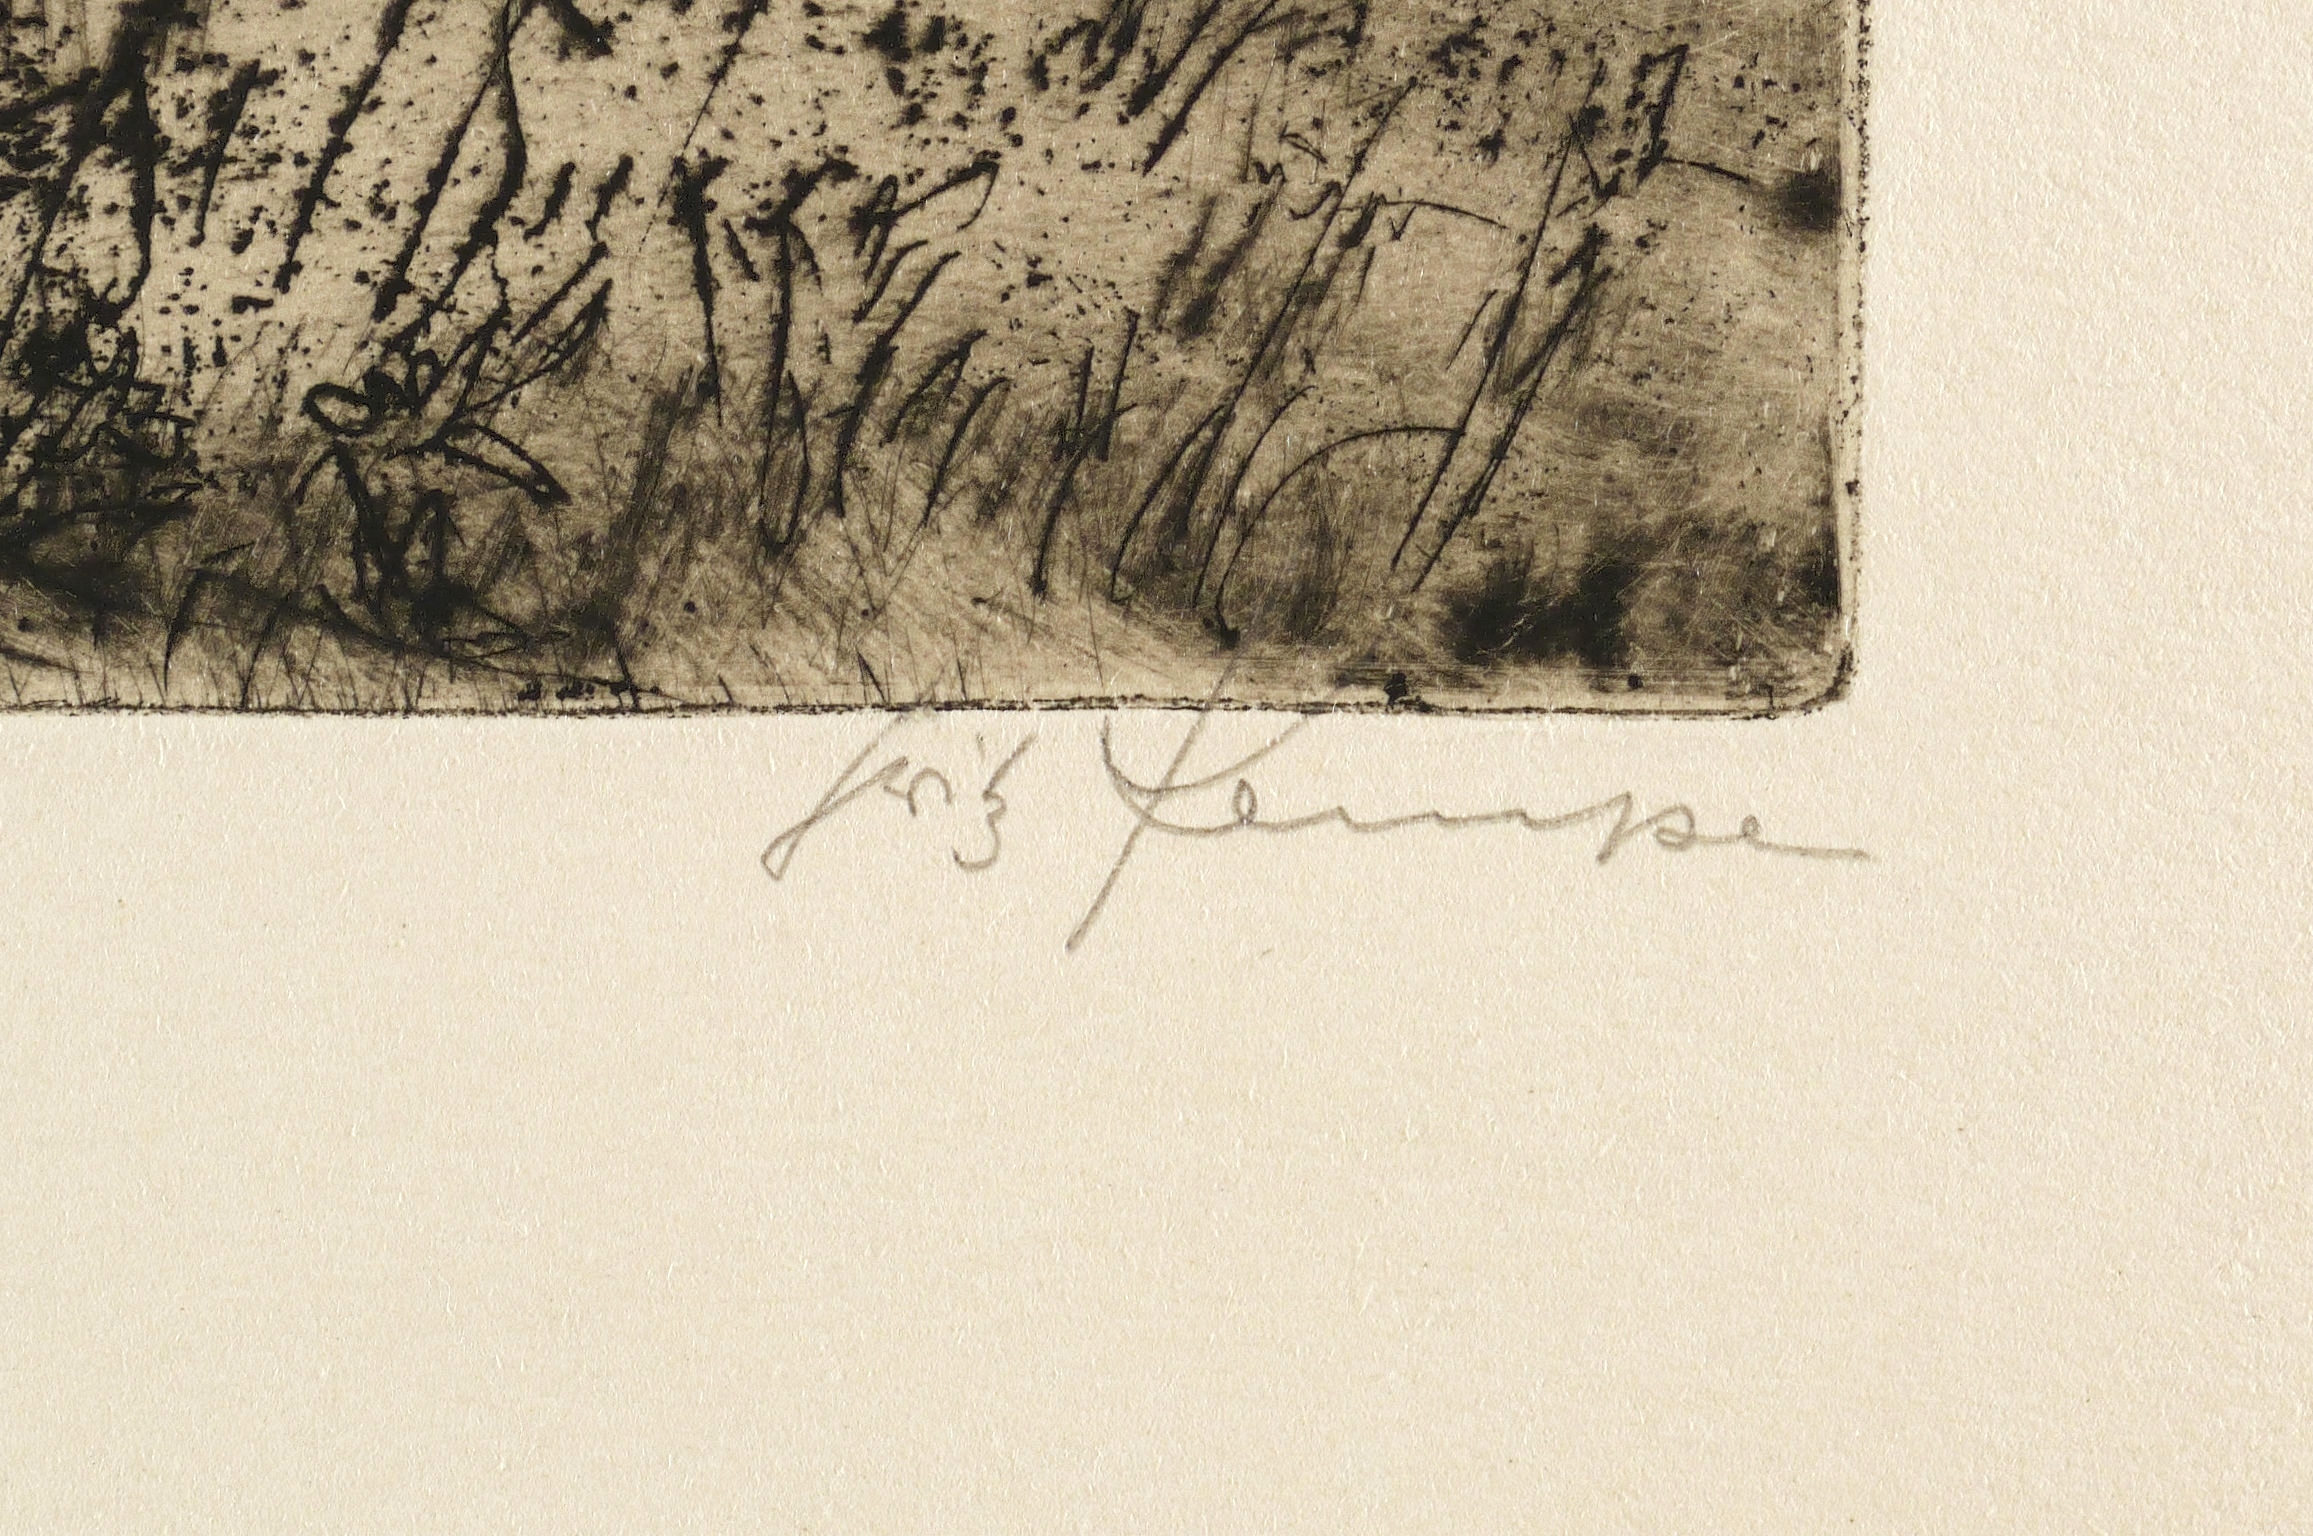 Fritz Kempe